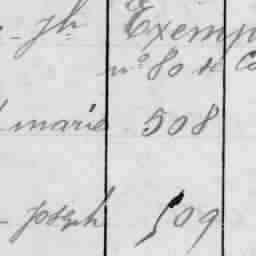 - jh Exemp
n° 80 de Co
marie 508
- joseph 509